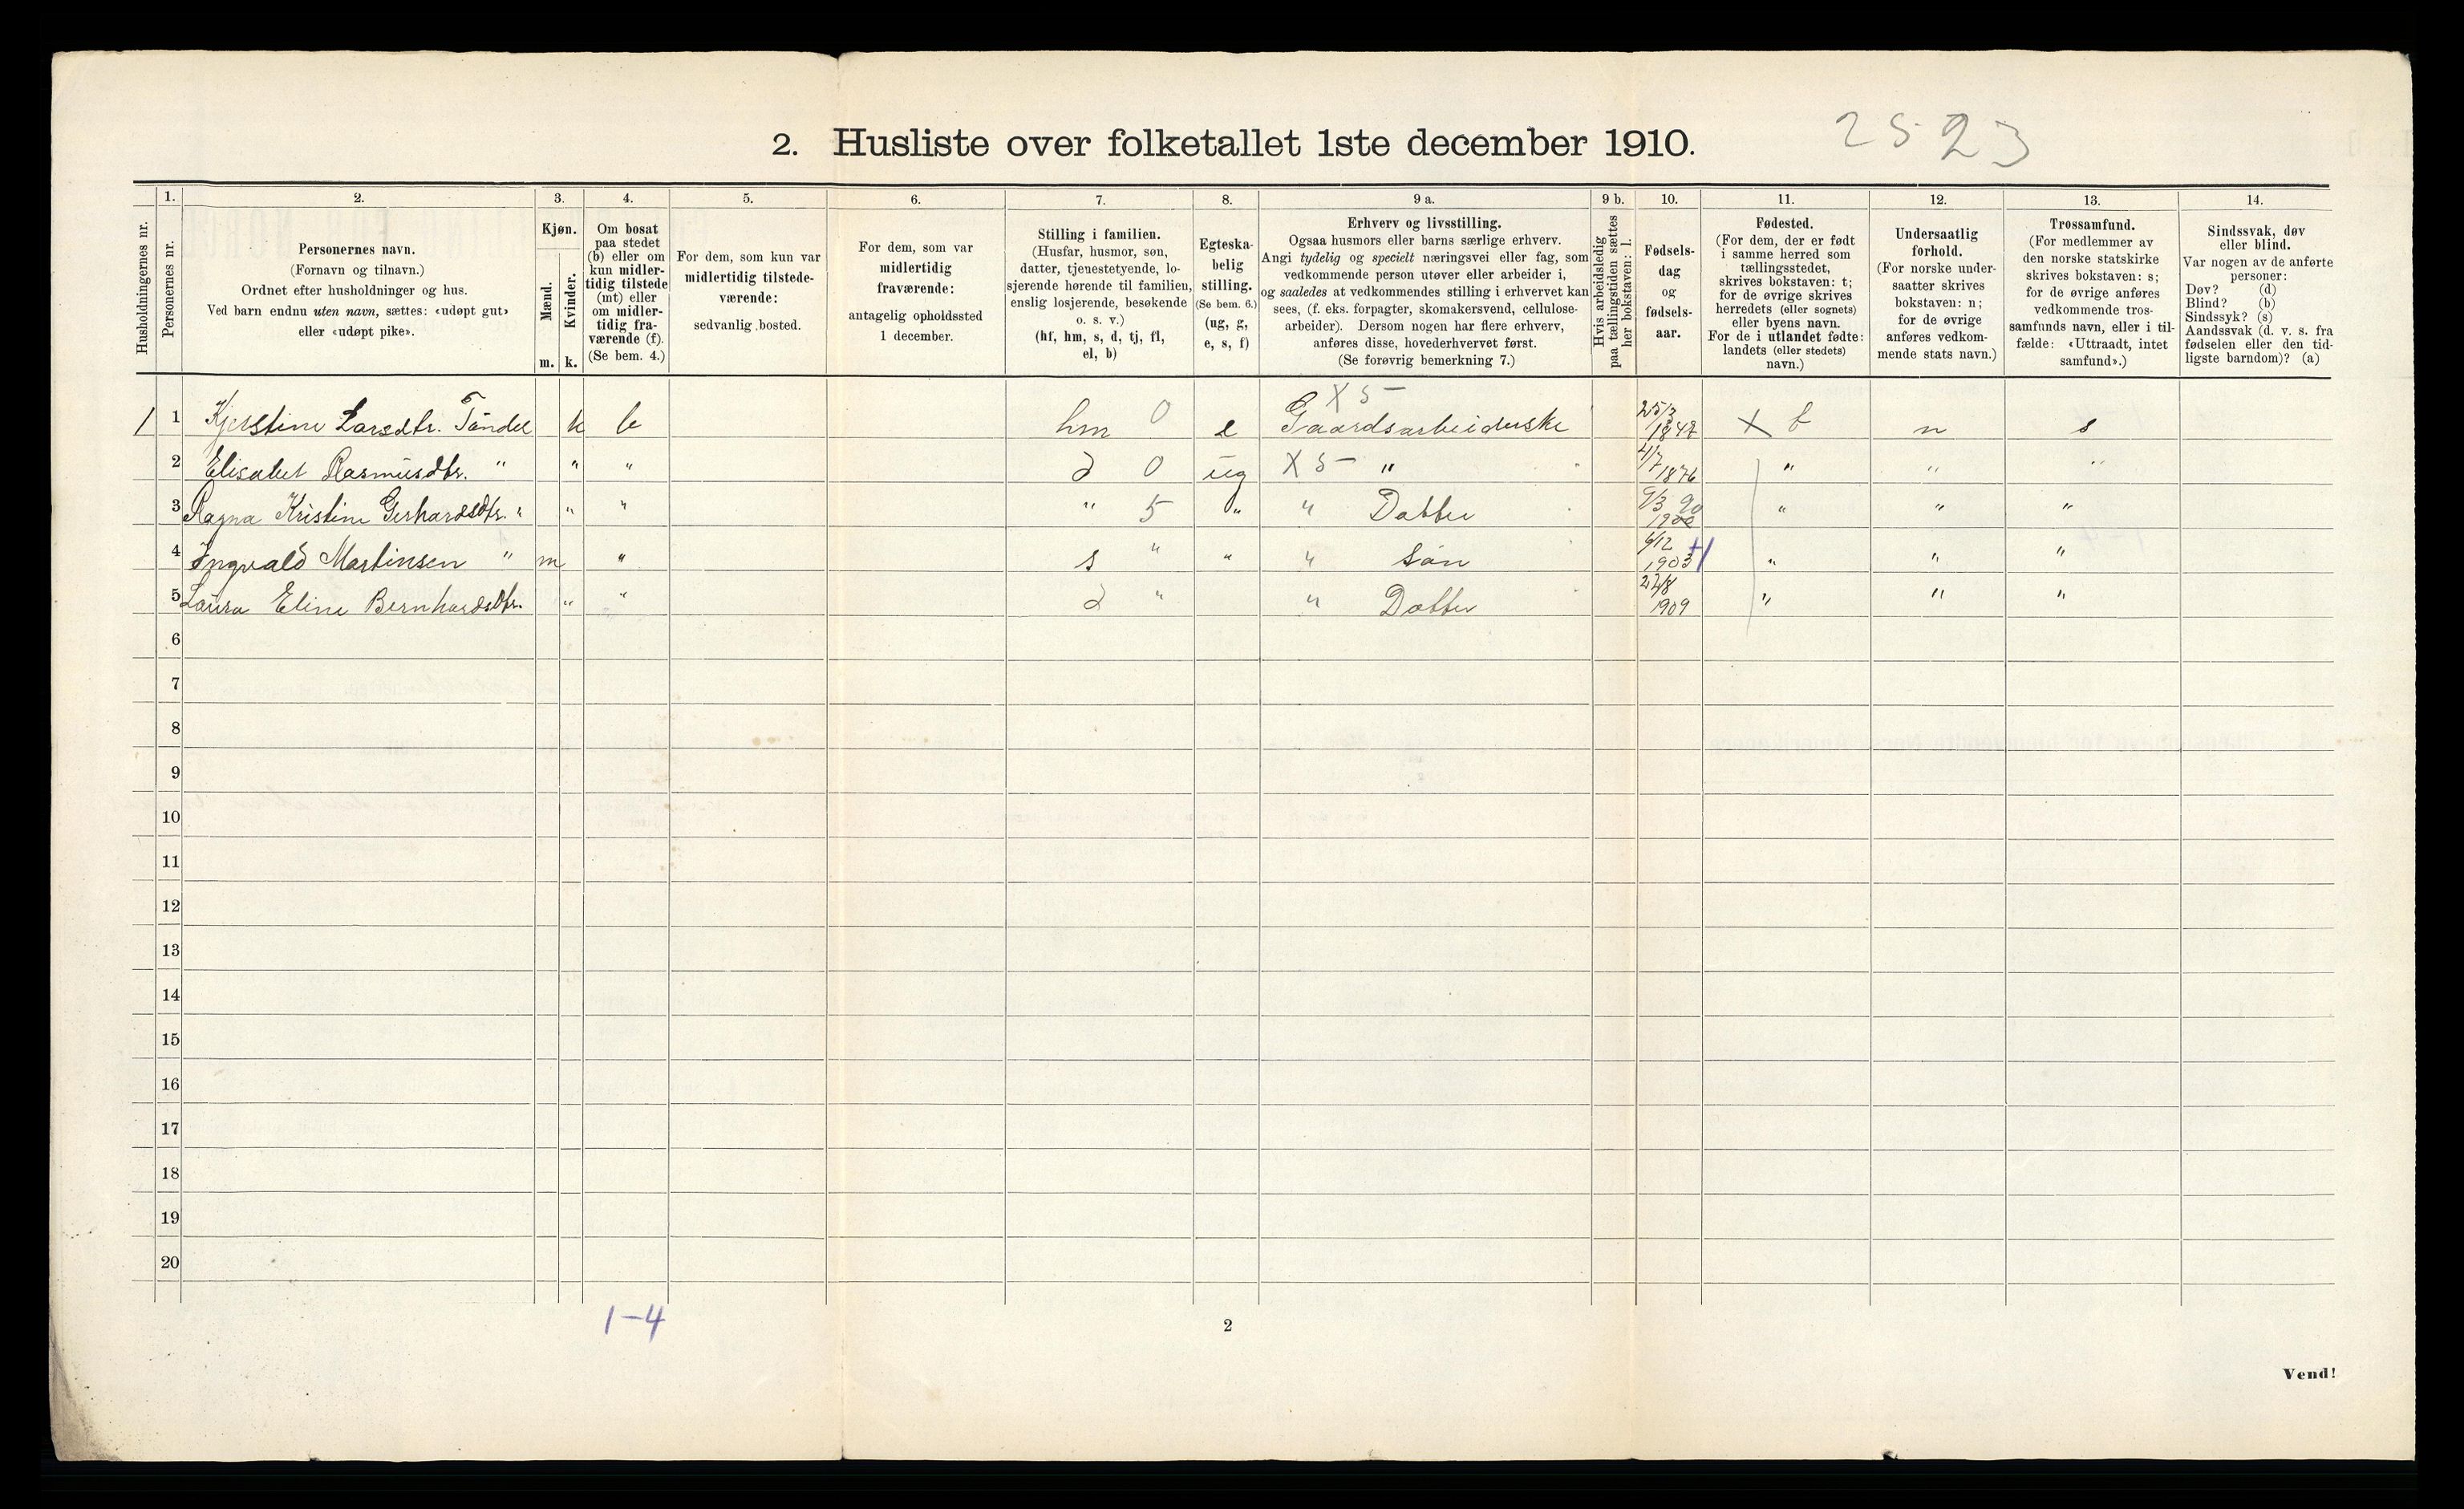 2. Husliste over folketallet 1ste december 1910.
2523
Husholdningernes nr.
1.
Personernes nr.
2.
Personernes navn.
(Fornavn og tilnavn.)
Ordnet efter husholdninger og hus.
Ved barn endnu uten navn, sættes: «udøpt gut»
eller «udøpt pike».
3.
Kjøn.
Mænd.
m.
Kvinder.
k.
4.
Om bosat
paa stedet
(b) eller om
kun midler-
tidig tilstede
(mt) eller
om midler-
tidig fra-
værende (f).
(Se bem. 4.)
5.
For dem, som kun var
midlertidig tilstede-
værende:
sedvanlig bosted.
6.
For dem, som var
midlertidig
fraværende:
antagelig opholdssted
1 december.
7.
Stilling i familien.
(Husfar, husmor, søn,
datter, tjenestetyende, lo-
sjerende hørende til familien,
enslig losjerende, besøkende
o. s. v.)
(hf, hm, s, d, tj, fl,
el, b)
8.
Egteska-
belig
stilling.
(Se bem. 6.)
(ug, g,
e, s, f)
9 a.
Erhverv og livsstilling.
Ogsaa husmors eller barns særlige erhverv.
Angi tydelig og specielt næringsvei eller fag, som
vedkommende person utøver eller arbeider i,
og saaledes at vedkommendes stilling i erhvervet kan
sees, (f. eks. forpagter, skomakersvend, cellulose-
arbeider). Dersom nogen har flere erhverv,
anføres disse, hovederhvervet først.
(Se forøvrig bemerkning 7.)
9 b.
Hvis arbeidsledig
paa tællingstiden sættes
her bokstaven: l.
10.
Fødsels-
dag
og
fødsels-
aar.
11.
Fødested.
(For dem, der er født
i samme herred som
tællingsstedet,
skrives bokstaven: t;
for de øvrige skrives
herredets (eller sognets)
eller byens navn.
For de i utlandet fødte:
landets (eller stedets)
navn.)
12.
Undersaatlig
forhold.
(For norske under-
saatter skrives
bokstaven: n;
for de øvrige
anføres vedkom-
mende stats navn.)
13.
Trossamfund.
(For medlemmer av
den norske statskirke
skrives bokstaven: s;
for de øvrige anføres
vedkommende tros-
samfunds navn, eller i til-
fælde: «Uttraadt, intet
samfund».)
14.
Sindssvak, døv
eller blind.
Var nogen av de anførte
personer:
Døv? (d)
Blind? (b)
Sindssyk? (s)
Aandssvak (d. v. s. fra
fødselen eller den tid-
ligste barndom)? (a)
1 1 Kjerstine Larsdtr. Tändel k b hm 0 e X 5 Gaardsarbeiderske 25/3 X t n s
2 Elisabet Rasmusdtr. " " " d 0 ug X 5 " 4/7 1876 " " "
3 Ragna Kristine Gerhardsdtr. " " " " 5 " " Datter 9/3 90 " " "
4 Ingvald Martinsen " m " s " " " Sön 6/12 1903 " " "
5 Laura Eline Bernhardsdtr. " " d " " Datter 24/8 1909 " " "
6
7
8
9
10
11
12
13
14
15
16
17
18
19
20
1-4
2
Vend!